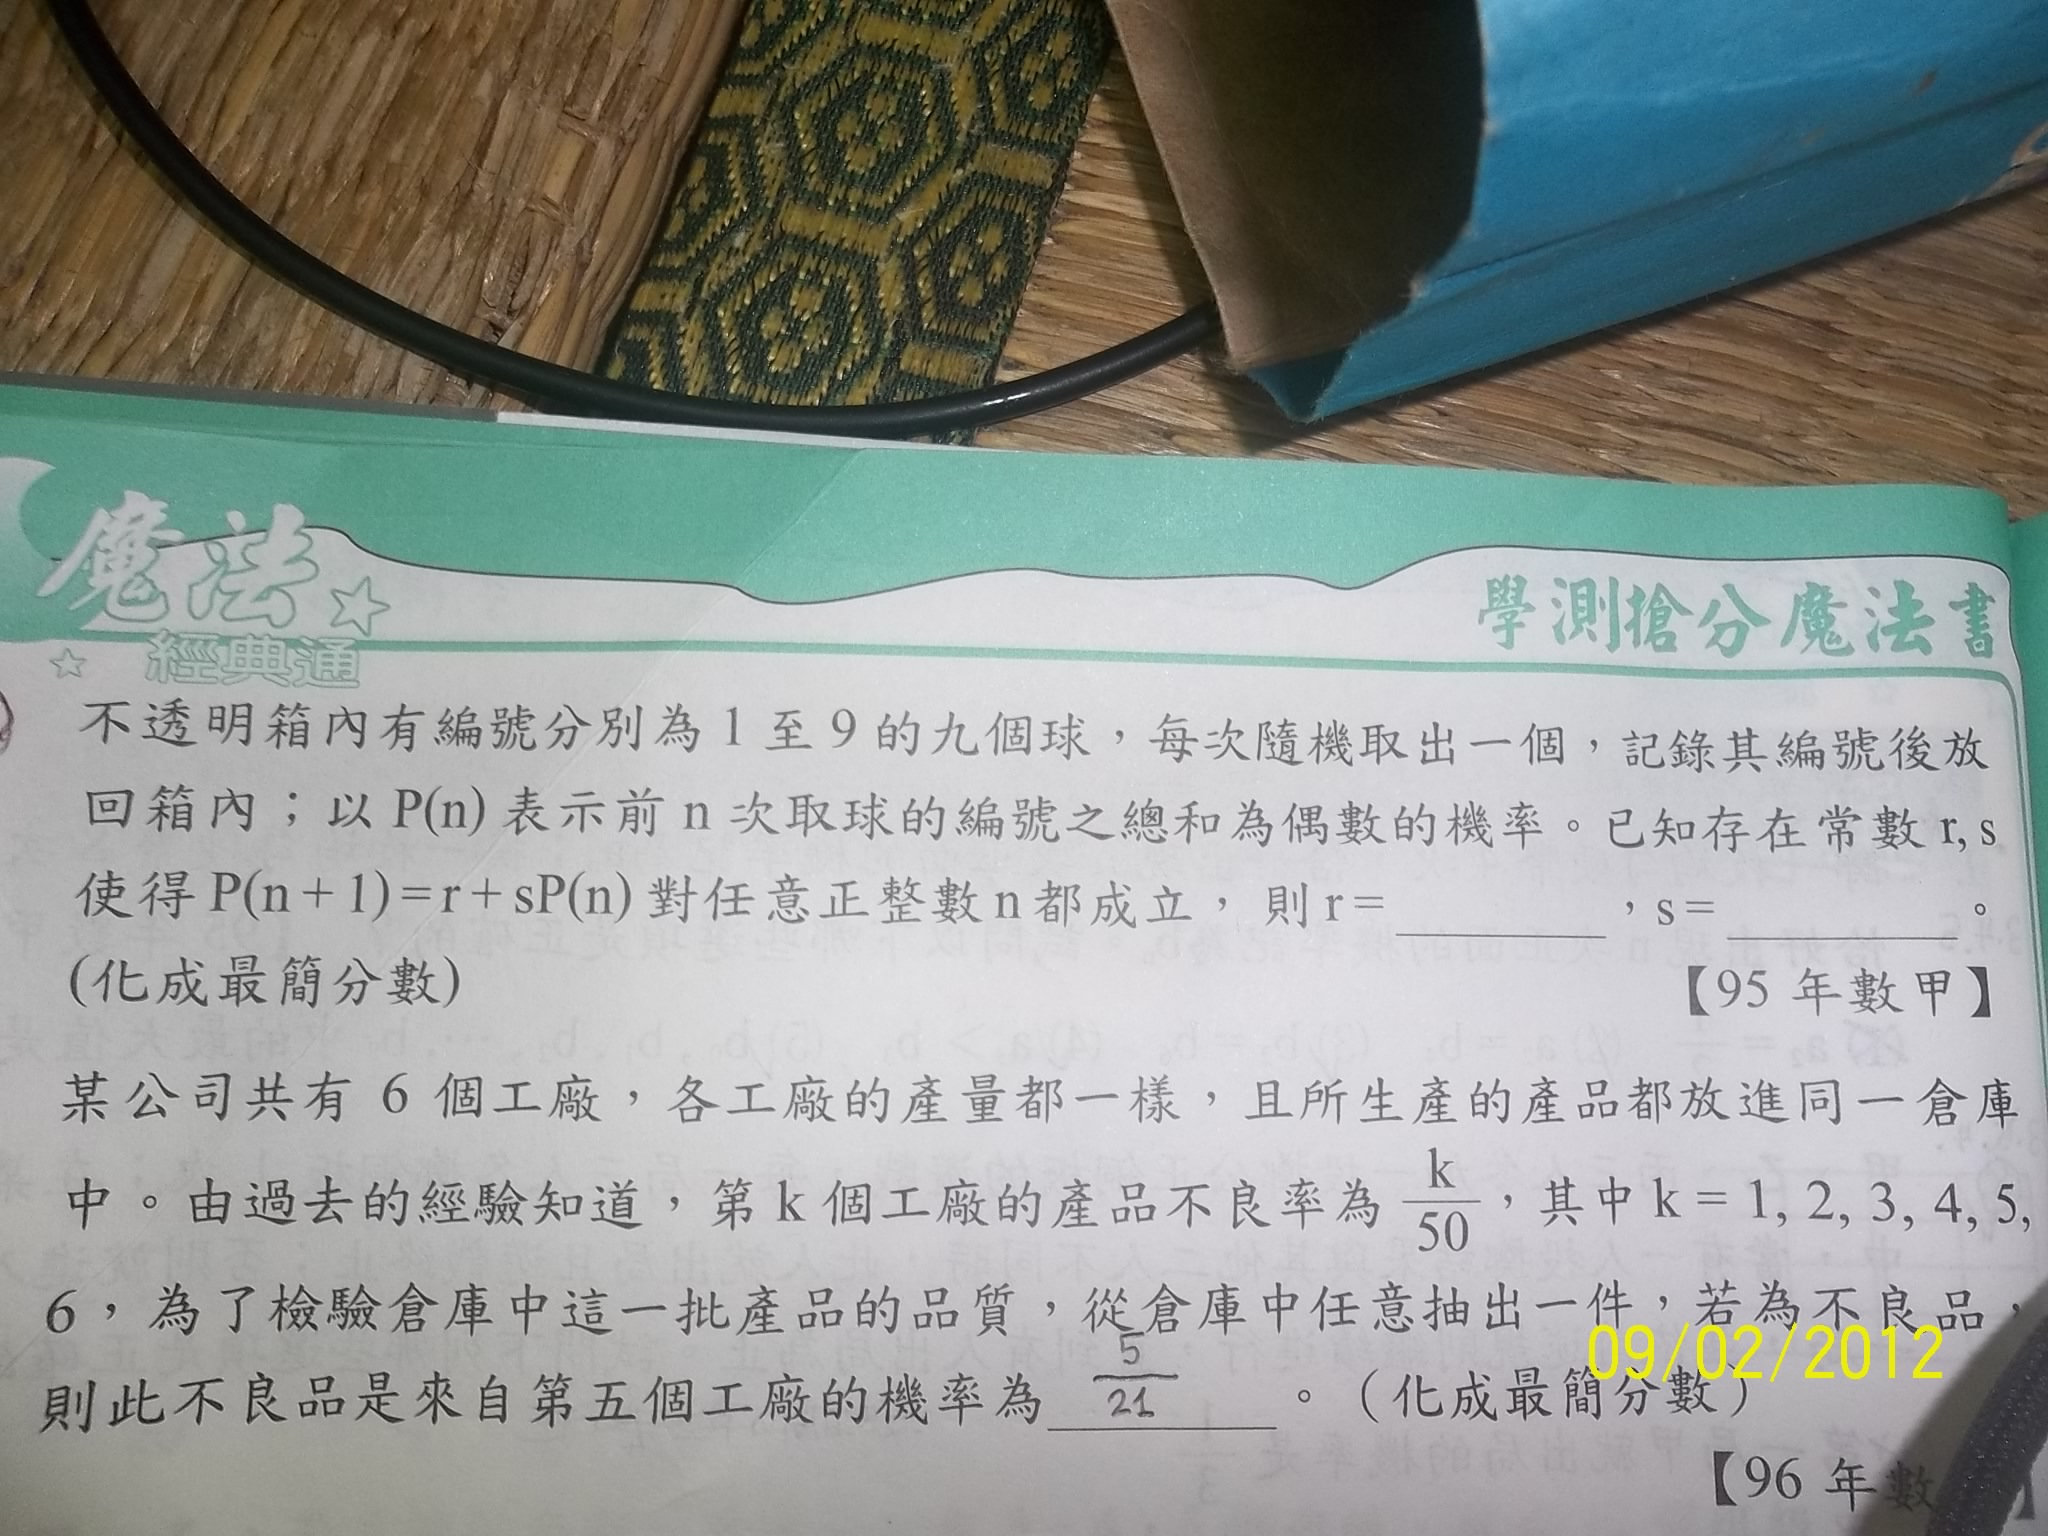 魔法
經典通
學測搶分魔法書
不透明箱內有編號分別為 1 至 9 的九個球，每次隨機取出一個，記錄其編號後放
回箱內；以 P(n) 表示前 n 次取球的編號之總和為偶數的機率。已知存在常數 r, s
使得 P(n+1)=r+sP(n) 對任意正整數 n 都成立， 則 r= ，s= 。
(化成最簡分數) 【95 年數甲】
某公司共有 6 個工廠，各工廠的產量都一樣，且所生產的產品都放進同一倉庫
中。由過去的經驗知道，第 k 個工廠的產品不良率為 k/50，其中 k = 1, 2, 3, 4, 5,
6，為了檢驗倉庫中這一批產品的品質，從倉庫中任意抽出一件，若為不良品，
則此不良品是來自第五個工廠的機率為 5/21 。（化成最簡分數）
【96 年數
09/02/2012